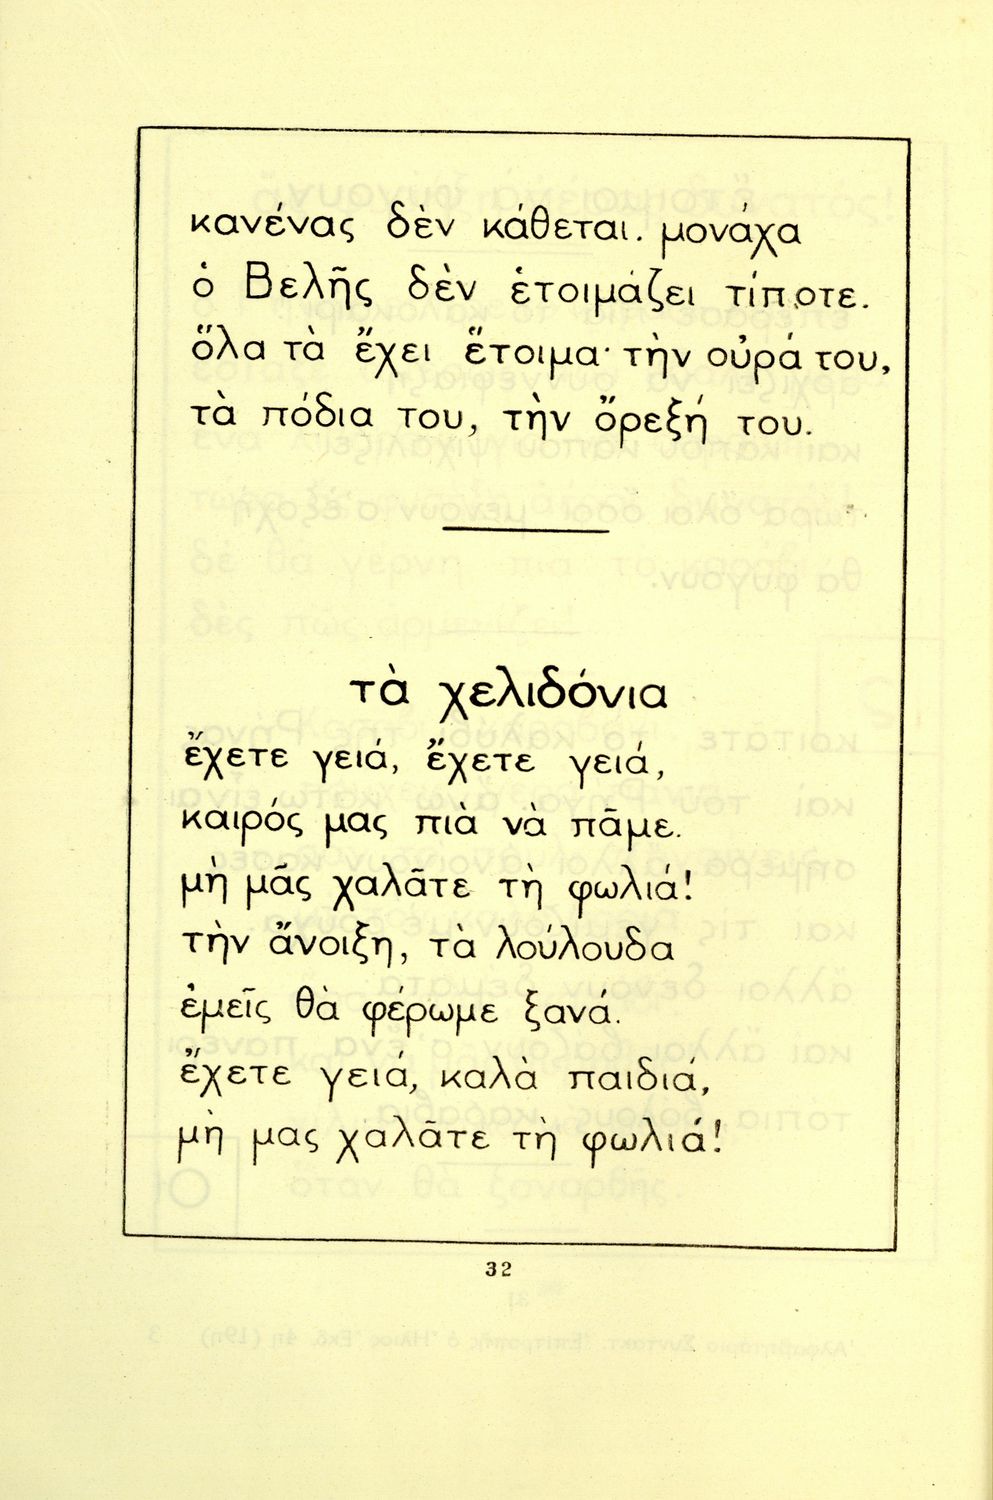 κανένας δὲν κάθεται. μονάχα
ὁ Βελῆς δὲν ἑτοιμάζει τίποτε.
ὅλα τὰ ἔχει ἕτοιμα· τὴν οὐρά του,
τὰ πόδια του, τὴν ὄρεξή του.
τὰ χελιδόνια
ἔχετε γειά, ἔχετε γειά,
καιρός μας πιὰ νὰ πᾶμε.
μὴ μᾶς χαλᾶτε τὴ φωλιά!
τὴν ἄνοιξη, τὰ λούλουδα
ἐμεῖς θὰ φέρωμε ξανά.
ἔχετε γειά, καλὰ παιδιά,
μὴ μας χαλᾶτε τὴ φωλιά!
32